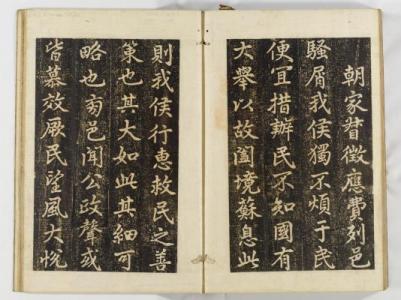 朝家督徵應費列邑
騷屑我侯獨不煩于民
便宜措辦民不知國有
大舉以故闔境蘇息此
則我侯行惠救民之善
策也其大如此其細可
略也旁邑聞公政聲或
皆慕效厥民望風大悅